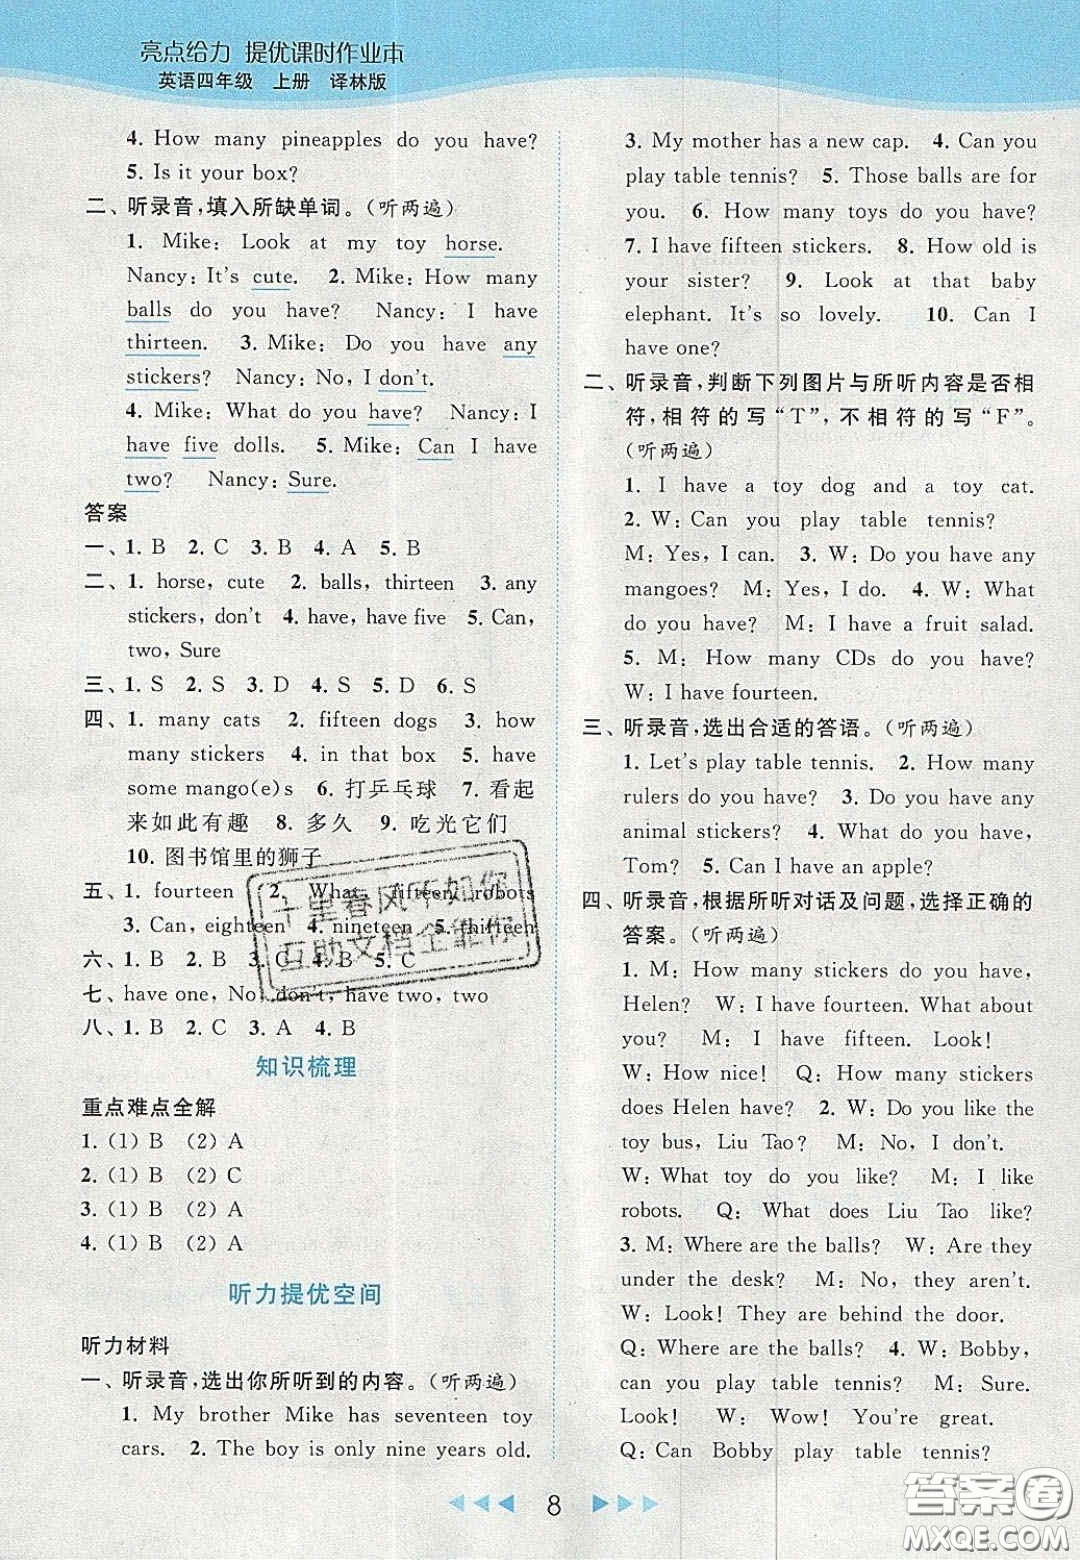 亮点给力 提优课时作业本
英语四年级 上册 译林版
4. How many pineapples do you have?
5. Is it your box?
二、听录音,填入所缺单词。(听两遍)
1. Mike: Look at my toy horse.
Nancy: It's cute. 2. Mike: How many
balls do you have? Nancy: I have
thirteen. 3. Mike: Do you have any
stickers? Nancy: No, I don't.
4. Mike: What do you have? Nancy: I
have five dolls. 5. Mike: Can I have
two? Nancy: Sure.
答案
一、1. B 2. C 3. B 4. A 5. B
二、1. horse, cute 2. balls, thirteen 3. any
stickers, don't 4. have, have five 5. Can,
two, Sure
三、1. S 2. S 3. D 4. S 5. D 6. S
四、1. many cats 2. fifteen dogs 3. how
many stickers 4. in that box 5. have
some mango(e)s 6. 打乒乓球 7. 看起
来如此有趣 8. 多久 9. 吃光它们
10. 图书馆里的狮子
五、1. fourteen 2. What, fifteen, robots
3. Can, eighteen 4. nineteen 5. thirteen
六、1. B 2. B 3. C 4. B 5. C
七、have one, No, don't, have two, two
八、1. B 2. C 3. A 4. B
十里春风不如你
互助文档全靠你
知识梳理
重点难点全解
1. (1) B (2) A
2. (1) B (2) C
3. (1) B (2) A
4. (1) B (2) A
听力提优空间
听力材料
一、听录音,选出你所听到的内容。(听两遍)
1. My brother Mike has seventeen toy
cars. 2. The boy is only nine years old.
3. My mother has a new cap. 4. Can you
play table tennis? 5. Those balls are for
you. 6. How many toys do you have?
7. I have fifteen stickers. 8. How old is
your sister? 9. Look at that baby
elephant. It's so lovely. 10. Can I
have one?
二、听录音,判断下列图片与所听内容是否相
符,相符的写“T”,不相符的写“F”。
(听两遍)
1. I have a toy dog and a toy cat.
2. W: Can you play table tennis?
M: Yes, I can. 3. W: Do you have any
mangoes? M: Yes, I do. 4. W: What
do you have? M: I have a fruit salad.
5. M: How many CDs do you have?
W: I have fourteen.
三、听录音,选出合适的答语。(听两遍)
1. Let's play table tennis. 2. How many
rulers do you have? 3. Do you have any
animal stickers? 4. What do you have,
Tom? 5. Can I have an apple?
四、听录音,根据所听对话及问题,选择正确的
答案。(听两遍)
1. M: How many stickers do you have,
Helen? W: I have fourteen. What about
you? M: I have fifteen. Look!
W: How nice! Q: How many stickers
does Helen have? 2. W: Do you like the
toy bus, Liu Tao? M: No, I don't.
W: What toy do you like? M: I like
robots. Q: What does Liu Tao like?
3. M: Where are the balls? W: Are they
under the desk? M: No, they aren't.
W: Look! They are behind the door.
Q: Where are the balls? 4. W: Bobby,
can you play table tennis? M: Sure.
Look! W: Wow! You're great.
Q: Can Bobby play table tennis?
8
答案圈
MXQE.COM